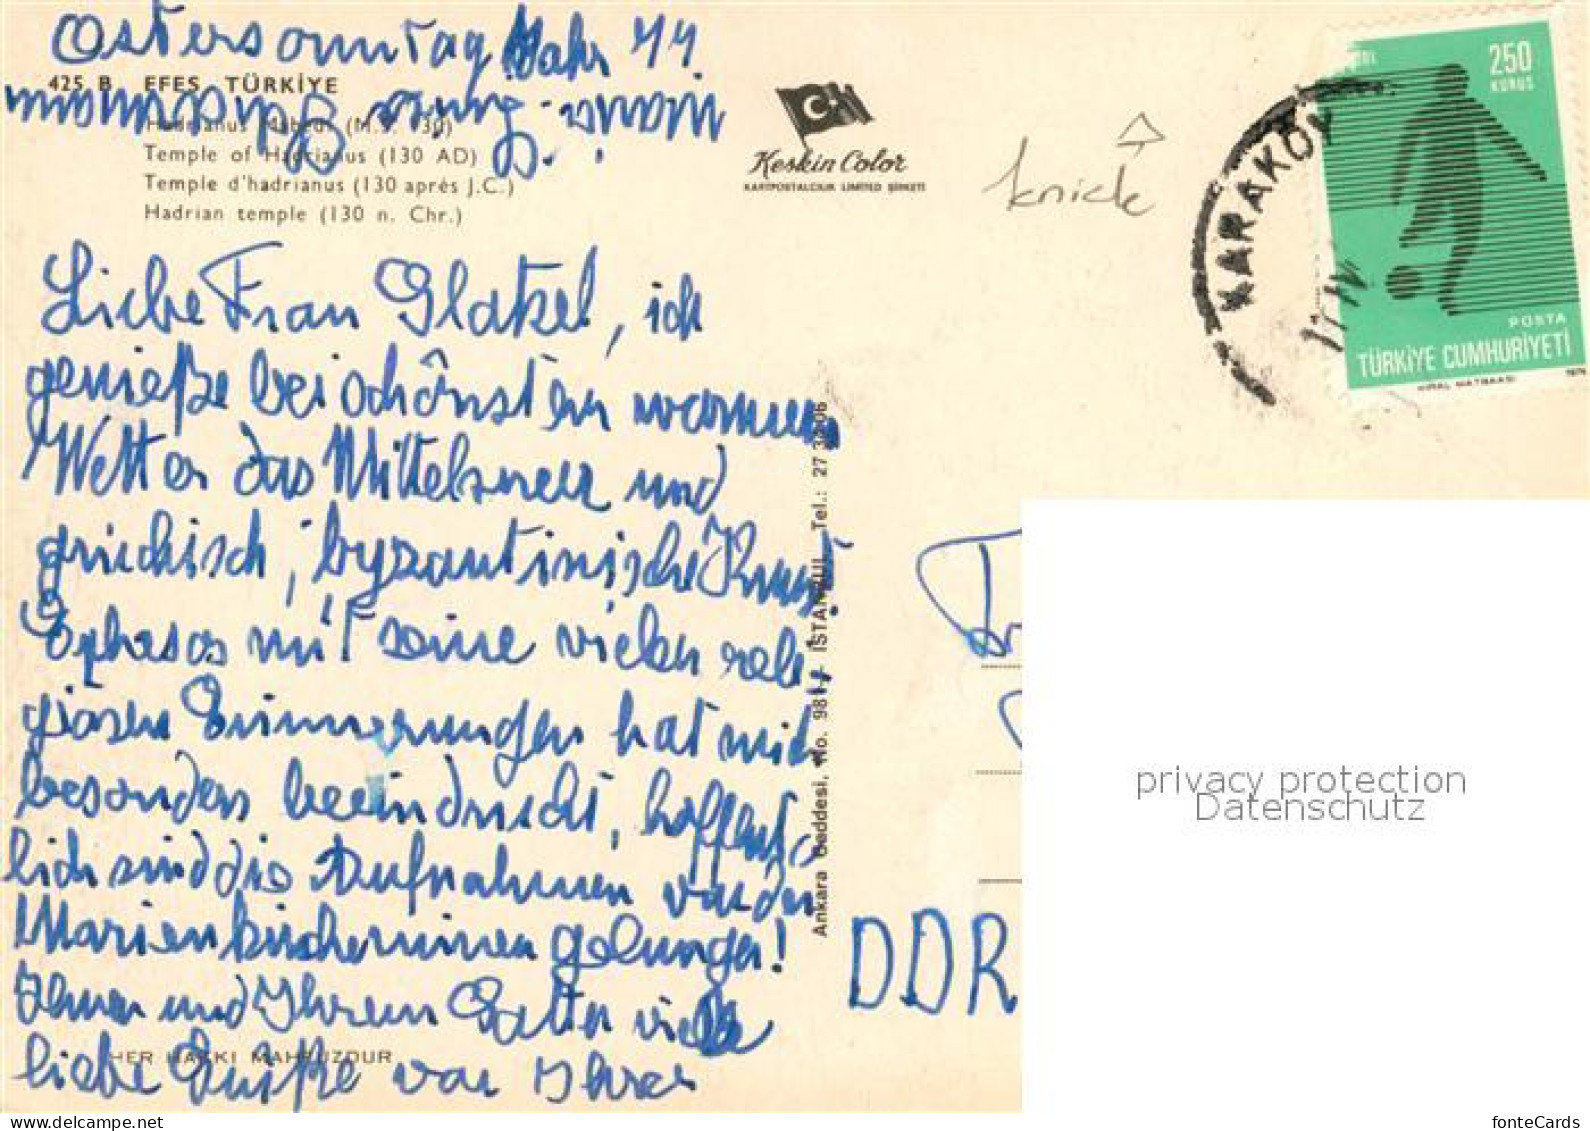 Ostersonntag Jahr 77
425 B EFES TÜRKİYE
Hadrianus Mabedi (M.S. 130)
Temple of Hadrianus (130 AD)
Temple d'hadrianus (130 aprés J.C.)
Hadrian temple (130 n. Chr.)
Keskin Color
KARTPOSTALCILIK LIMITED ŞIRKETI
knick
KARAKÖY
250
KURUŞ
POSTA
TÜRKİYE CUMHURİYETİ
Liebe Frau Glatzel, ich
genieße bei schönsten warmen
Wetter das Mittelmeer und
griechisch, byzantinische Kunst
Ephesos mit seine vielen reli-
giösen Erinnerungen hat mich
besonders beeindruckt, hoffent-
lich sind die Aufnahmen von der
Marienkirchenruinen gelungen!
Ihnen und Ihrem Gatten viele
liebe Grüße von Ihrer
HER HAKKI MAHFUZDUR
Ankara Caddesi, No. 98 İSTANBUL Tel.:
DDR
privacy protection
Datenschutz
fonteCards
https://www.delcampe.net